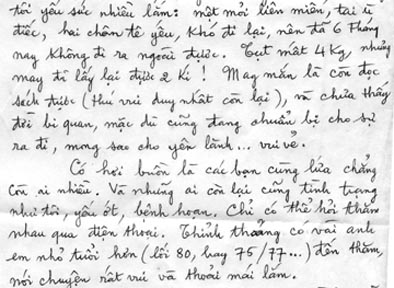 tôi yếu sức nhiều lắm: mệt mỏi liên miên, tai ù
điếc, hai chân tê yếu, khó đi lại, nên đã 6 tháng
nay không đi ra ngoài được. Tụt mất 4 Kg, nhưng
may đã lấy lại được 2 Kí ! May mắn là còn đọc
sách được (thú vui duy nhất còn lại), và chưa thấy
đời bi quan, mặc dù cũng đang chuẩn bị cho sự
ra đi, mong sao cho yên lành... vui vẻ.
Có hơi buồn là các bạn cùng lứa chẳng
còn ai nhiều. Và những ai còn lại cũng tình trạng
như tôi, yếu ớt, bệnh hoạn. Chỉ có thể hỏi thăm
nhau qua điện thoại. Thỉnh thoảng có vài anh
em nhỏ tuổi hơn (lối 80, hay 75/77...) đến thăm,
nói chuyện rất vui và thoải mái lắm.